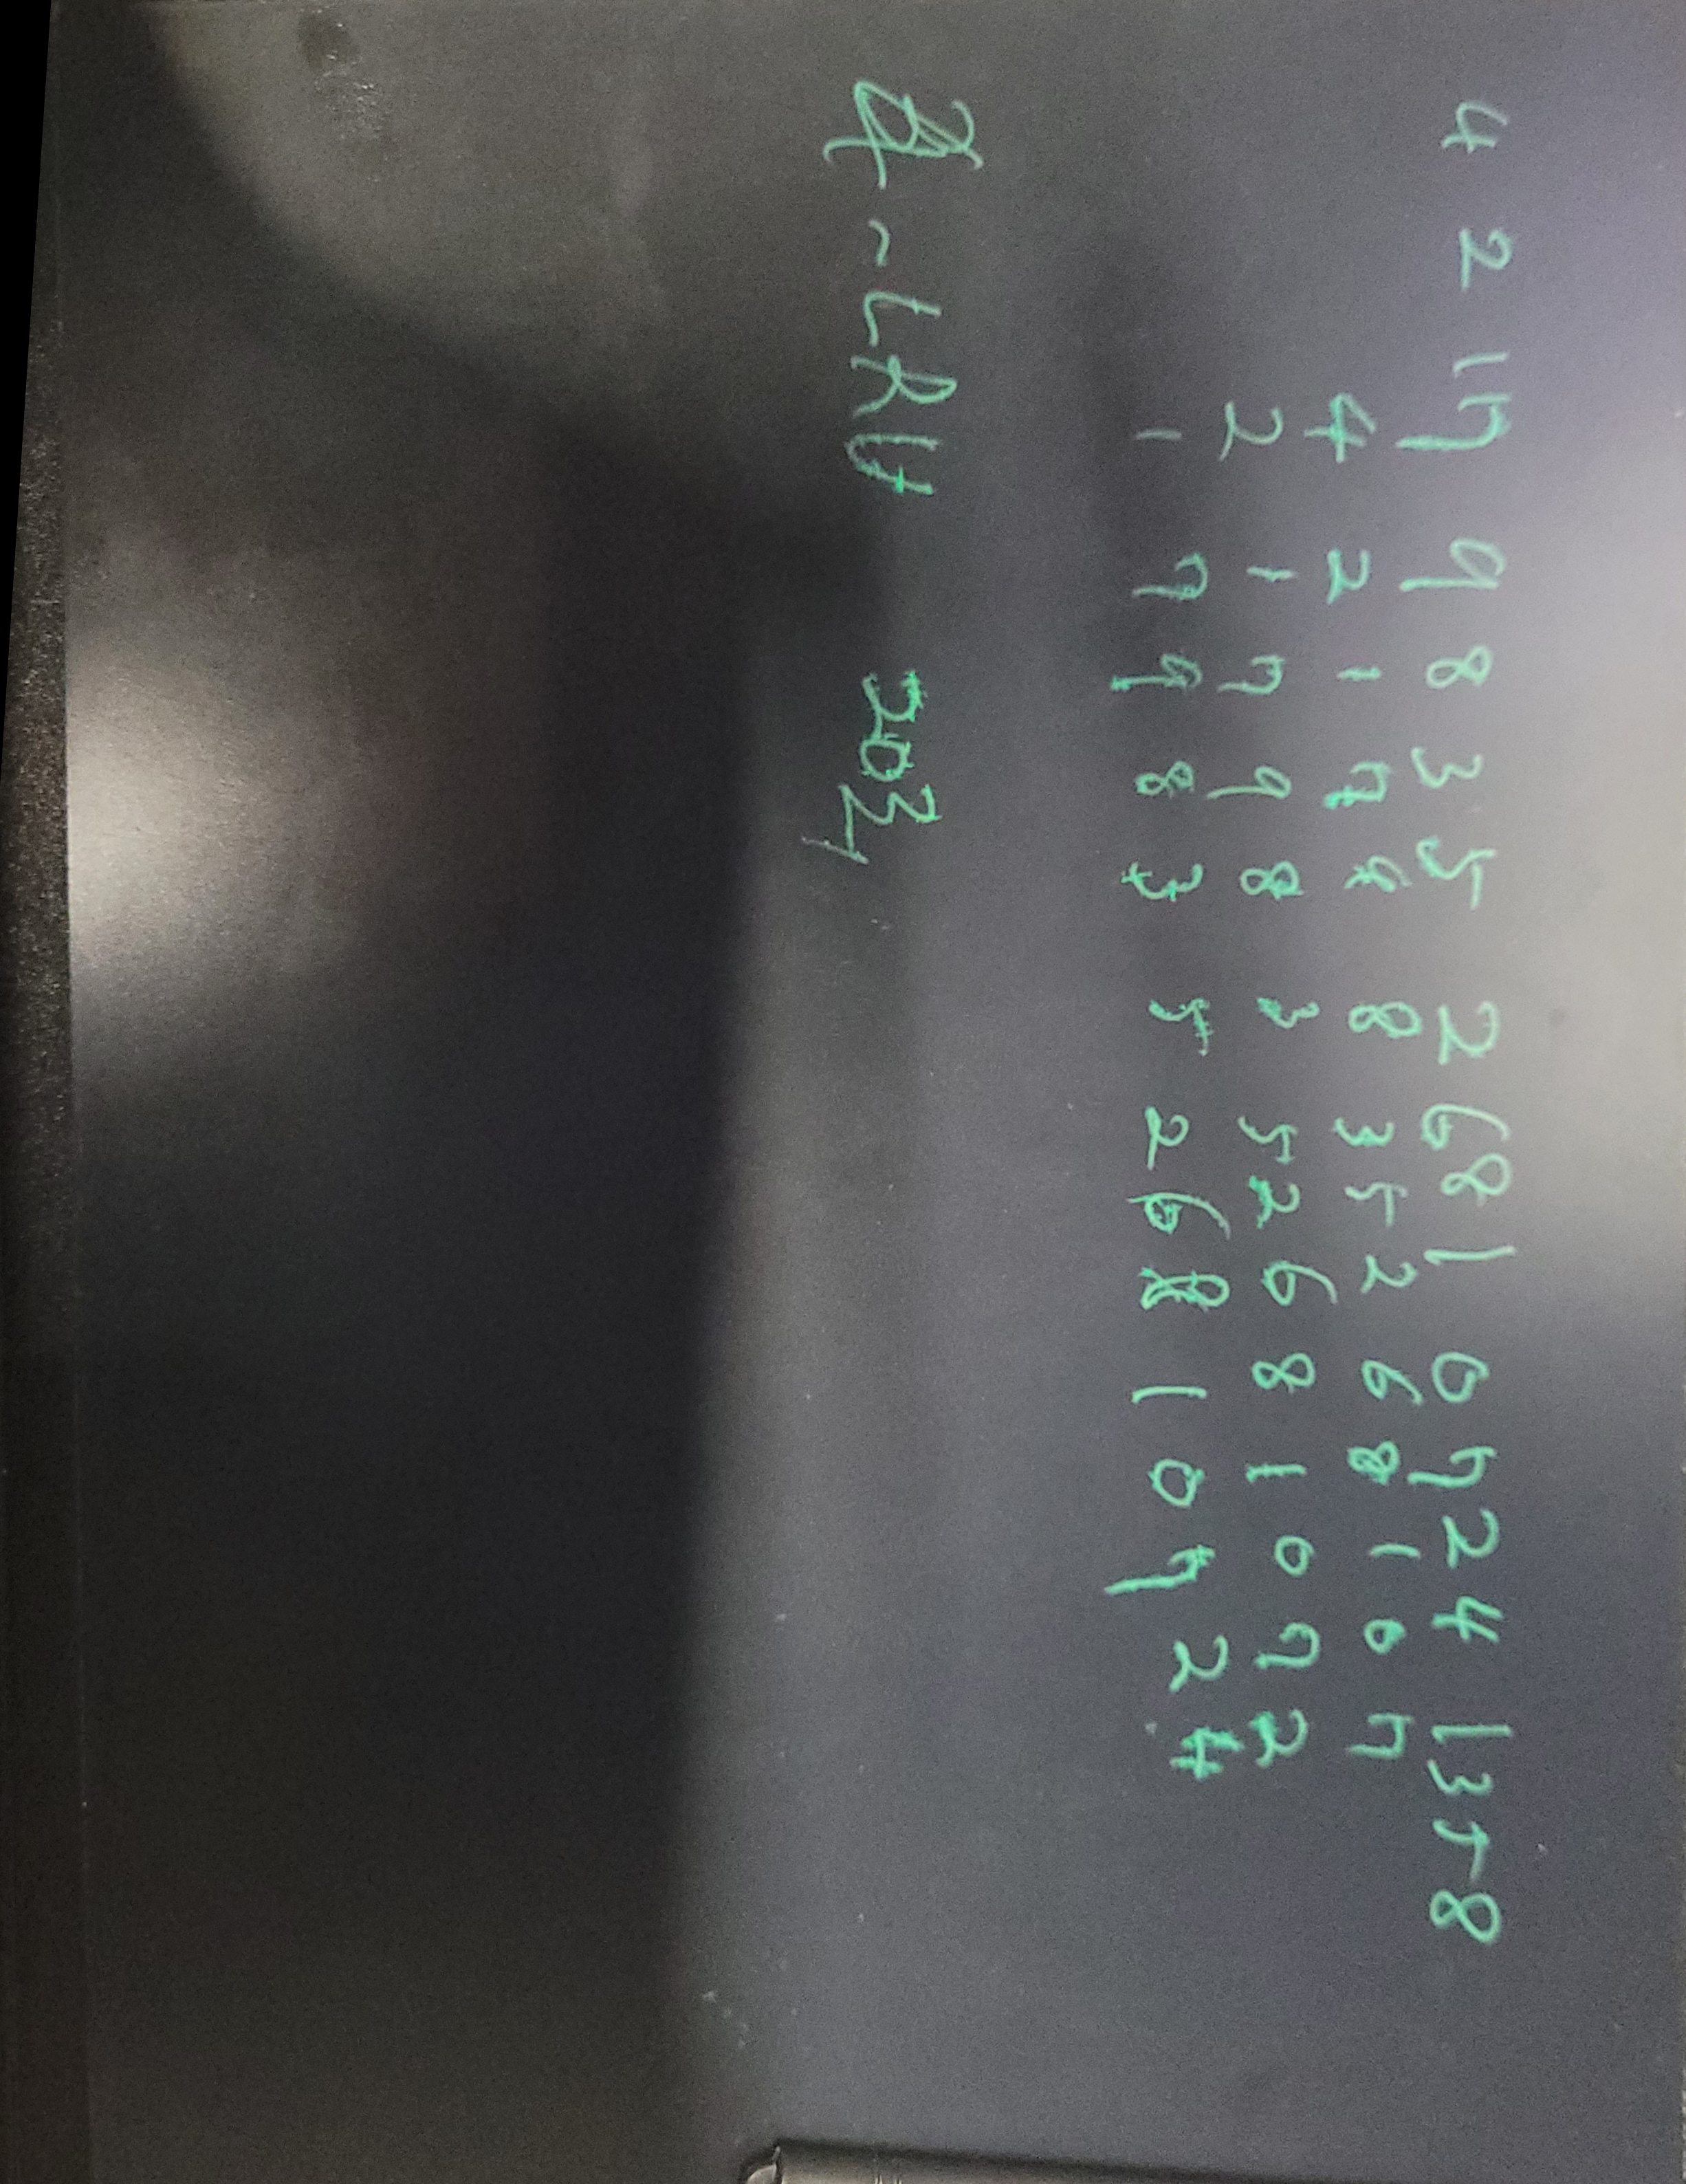 4 2 1 7 9 8 3 5 2 6 8 1 0 7 2 4 1 3 5 8
4 2 1 7 9 8 3 5 2 6 8 1 0 7
2 1 7 9 8 3 5 2 6 8 1 0 7 2
1 7 9 8 3 5 2 6 8 1 0 7 2 4
~LRU